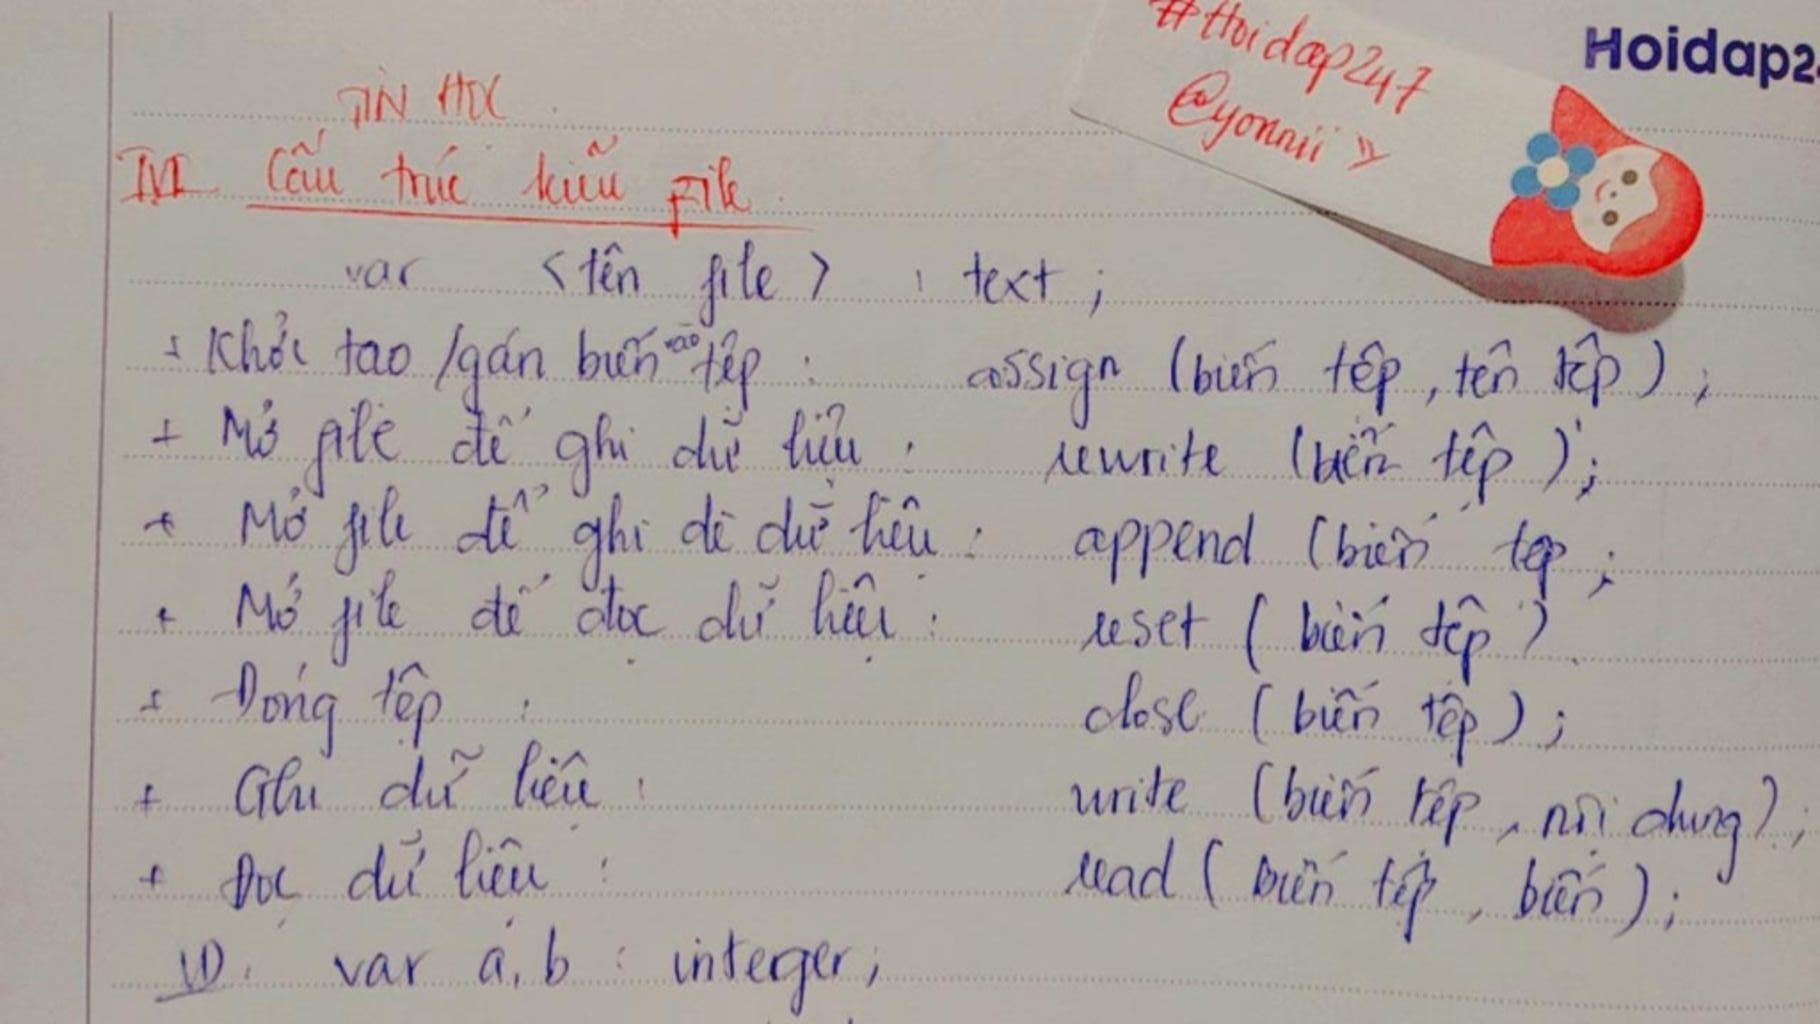 #Hoidap247
@yonnii
Hoidap2
TIN HỌC
IVI Cấu trúc kiểu file
var <tên file> : text;
+ Khởi tạo /gán biến vào tệp : assign (biến tệp, tên tệp);
+ Mở file để ghi dữ liệu : rewrite (biến tệp);
+ Mở file để ghi đè dữ liệu : append (biến tệp;
+ Mở file để đọc dữ liệu : reset (biến tệp)
+ Đóng tệp : close (biến tệp);
+ Ghi dữ liệu : write (biến tệp, nội dung);
+ Đọc dữ liệu : read (biến tệp, biến);
VD: var a, b : interger;